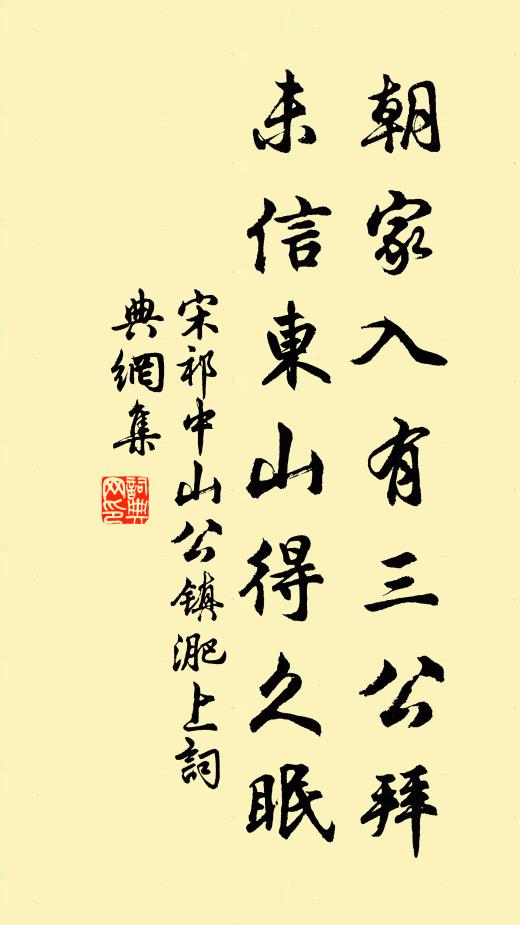 朝家入有三公拜
未信東山得久眠
宋祁中山公鎮淝上詞
典網集
詞典网印